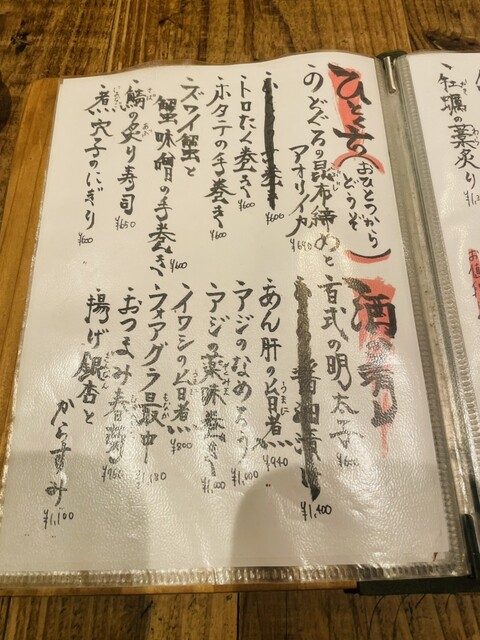 ひとくち
(おひとつから
どうぞ)
のどぐろの昆布締めと
アオリイカ
¥690
¥600
トロたく巻き
¥600
ホタテの手巻き
¥600
ズワイ蟹と
蟹味噌の手巻き
¥600
鯖の炙り寿司
¥650
煮穴子のにぎり
¥600
酒の肴
百式の明太子
¥600
醤油漬け
¥1,400
あん肝の旨煮
うまに
¥940
アジのなめろう
¥1,000
アジの薬味巻き
¥1,000
イワシの旨煮
うまに
¥800
フォアグラ最中
もなか
¥1,180
おつまみ春巻
¥960
揚げ銀杏と
ぎんなん
からすみ
¥1,100
牡蠣の藁炙り